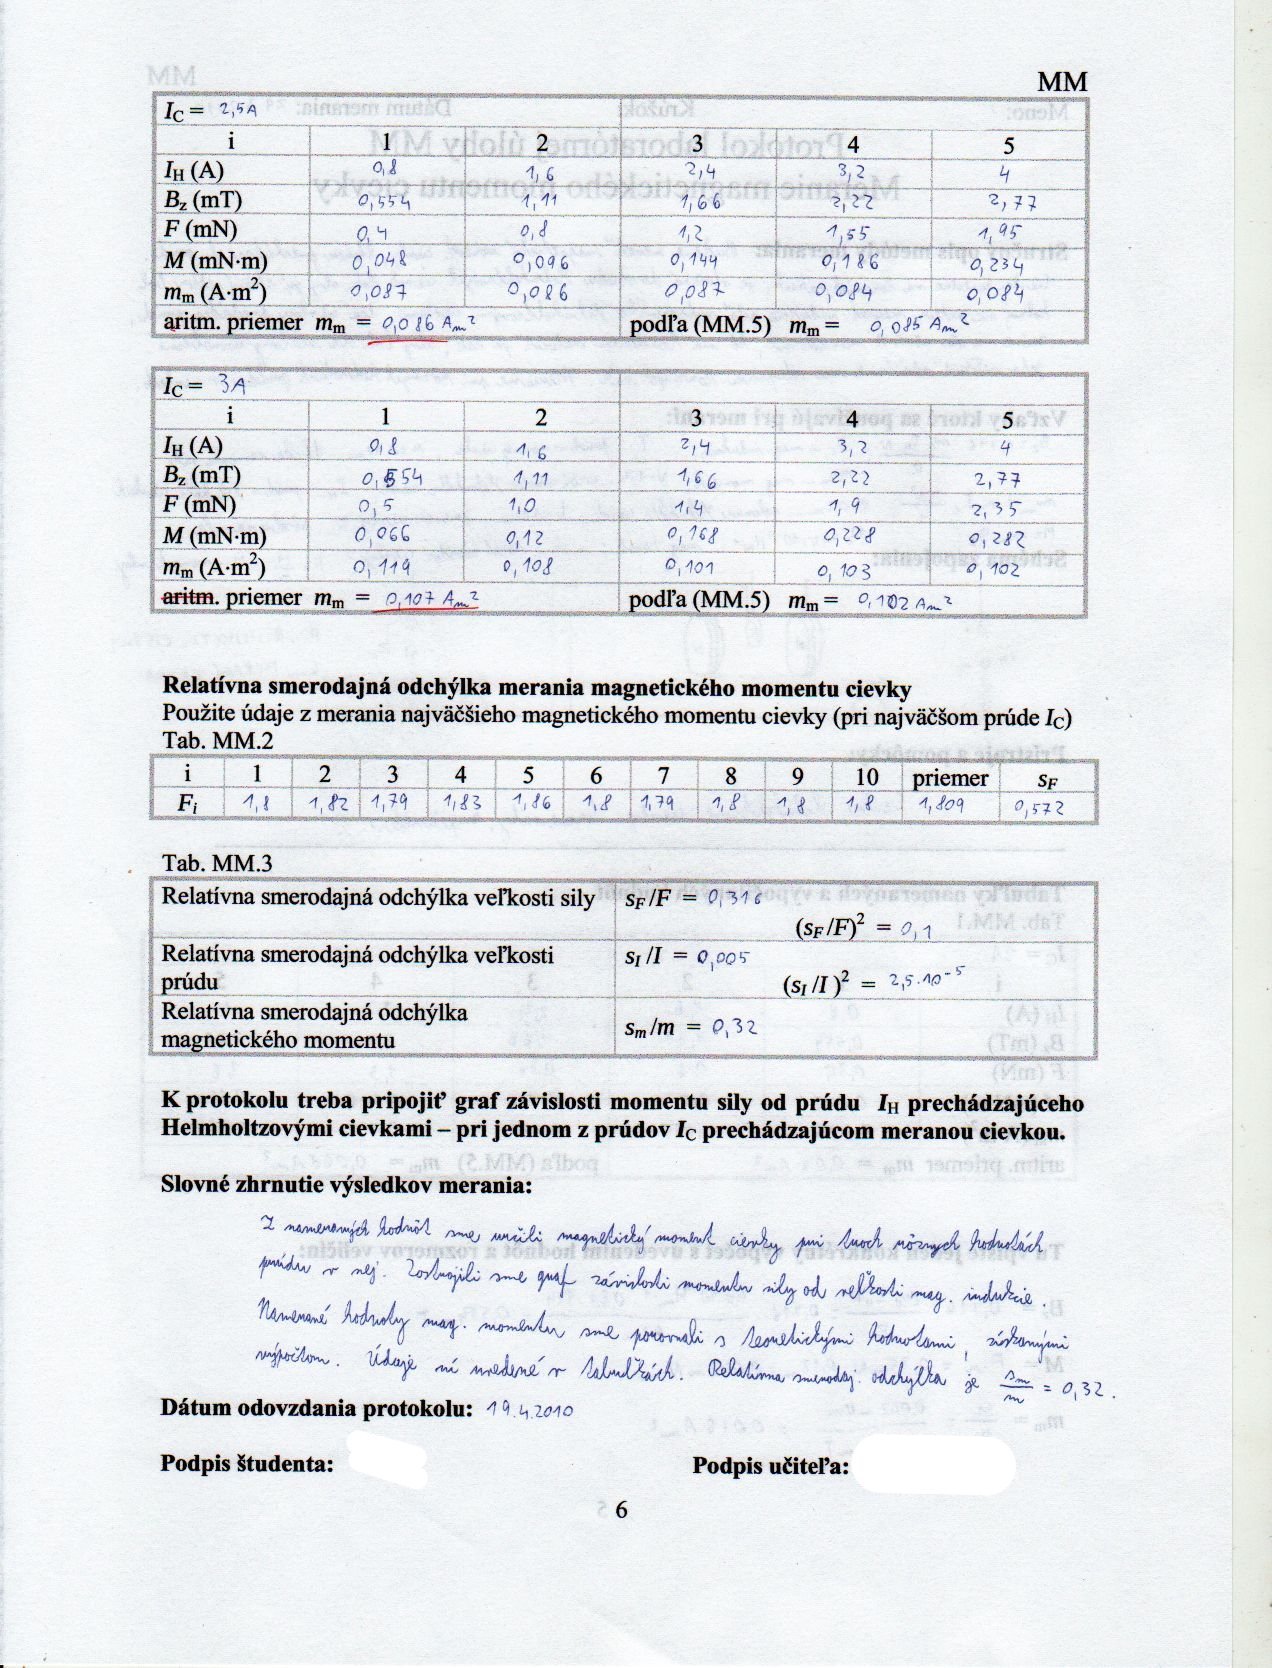 MM
I_C = 2,5A
i 1 2 3 4 5
I_H (A) 0,8 1,6 2,4 3,2 4
B_z (mT) 0,554 1,11 1,66 2,22 2,77
F (mN) 0,4 0,8 1,2 1,55 1,95
M (mN·m) 0,048 0,096 0,144 0,186 0,234
m_m (A·m²) 0,087 0,086 0,087 0,084 0,084
aritm. priemer m_m = 0,086 Am² podľa (MM.5) m_m = 0,085 Am²
I_C = 3A
i 1 2 3 4 5
I_H (A) 0,8 1,6 2,4 3,2 4
B_z (mT) 0,554 1,11 1,66 2,22 2,77
F (mN) 0,5 1,0 1,4 1,9 2,35
M (mN·m) 0,066 0,12 0,168 0,228 0,282
m_m (A·m²) 0,119 0,108 0,101 0,103 0,102
aritm. priemer m_m = 0,107 Am² podľa (MM.5) m_m = 0,102 Am²
Relatívna smerodajná odchýlka merania magnetického momentu cievky
Použite údaje z merania najväčšieho magnetického momentu cievky (pri najväčšom prúde I_C)
Tab. MM.2
i 1 2 3 4 5 6 7 8 9 10 priemer s_F
F_i 1,8 1,82 1,79 1,83 1,86 1,8 1,79 1,8 1,8 1,8 1,809 0,572
Tab. MM.3
Relatívna smerodajná odchýlka veľkosti sily s_F/F = 0,316
(s_F/F)² = 0,1
Relatívna smerodajná odchýlka veľkosti s_I/I = 0,005
prúdu (s_I/I)² = 2,5.10⁻⁵
Relatívna smerodajná odchýlka
magnetického momentu s_m/m = 0,32
K protokolu treba pripojiť graf závislosti momentu sily od prúdu I_H prechádzajúceho
Helmholtzovými cievkami – pri jednom z prúdov I_C prechádzajúcom meranou cievkou.
Slovné zhrnutie výsledkov merania:
Z nameraných hodnôt sme určili magnetický moment cievky pri troch rôznych hodnotách
prúdu v nej. Zostrojili sme graf závislosti momentu sily od veľkosti mag. indukcie.
Namerané hodnoty mag. momentu sme porovnali s teoretickými hodnotami, získanými
výpočtom. Údaje sú uvedené v tabuľkách. Relatívna smerodaj. odchýlka je s_m/m = 0,32.
Dátum odovzdania protokolu: 19.4.2010
Podpis študenta: Podpis učiteľa:
6